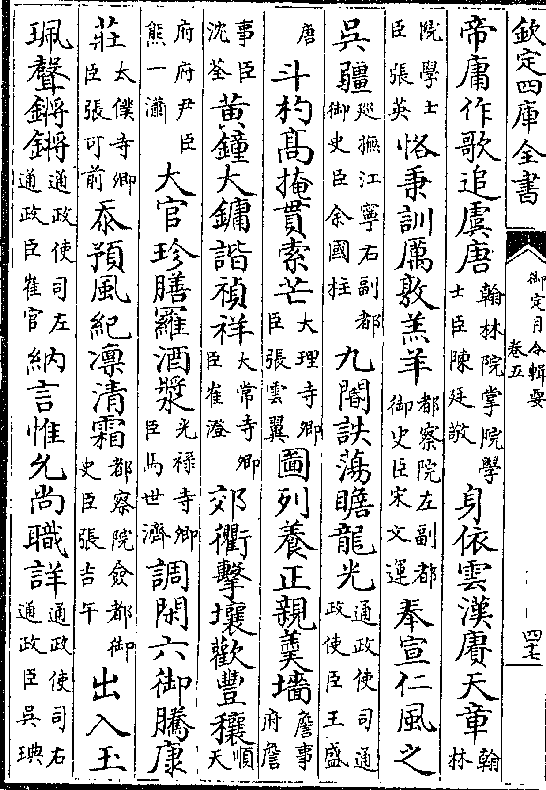 欽定四庫全書
御定月令輯要
卷五
四七
帝庸作歌追虞唐翰林院掌院學士臣陳廷敬身依雲漢賡天章翰林
院學士臣張英恪秉訓厲敦羔羊都察院左副都御史臣宋文運奉宣仁風之
吳疆廵撫江寧右副都御史臣余國柱九閽詄蕩瞻龍光通政使司通政使臣王盛
唐斗杓髙掩貫索芒大理寺卿臣張雲翼圖列養正親羮墻詹事府詹
事臣沈荃黄鐘大鏞諧禎祥大常寺卿臣崔澄郊衢擊壤歡豐穰順天
府府尹臣熊一瀟大官珍膳羅酒漿光禄寺卿臣馬世濟調閑六御騰康
莊太僕寺卿臣張可前忝預風紀凛清霜都察院僉都御史臣張吉午出入玉
珮聲鏘鏘通政使司左通政臣崔官納言惟允尚職詳通政使司右通政臣吳琠